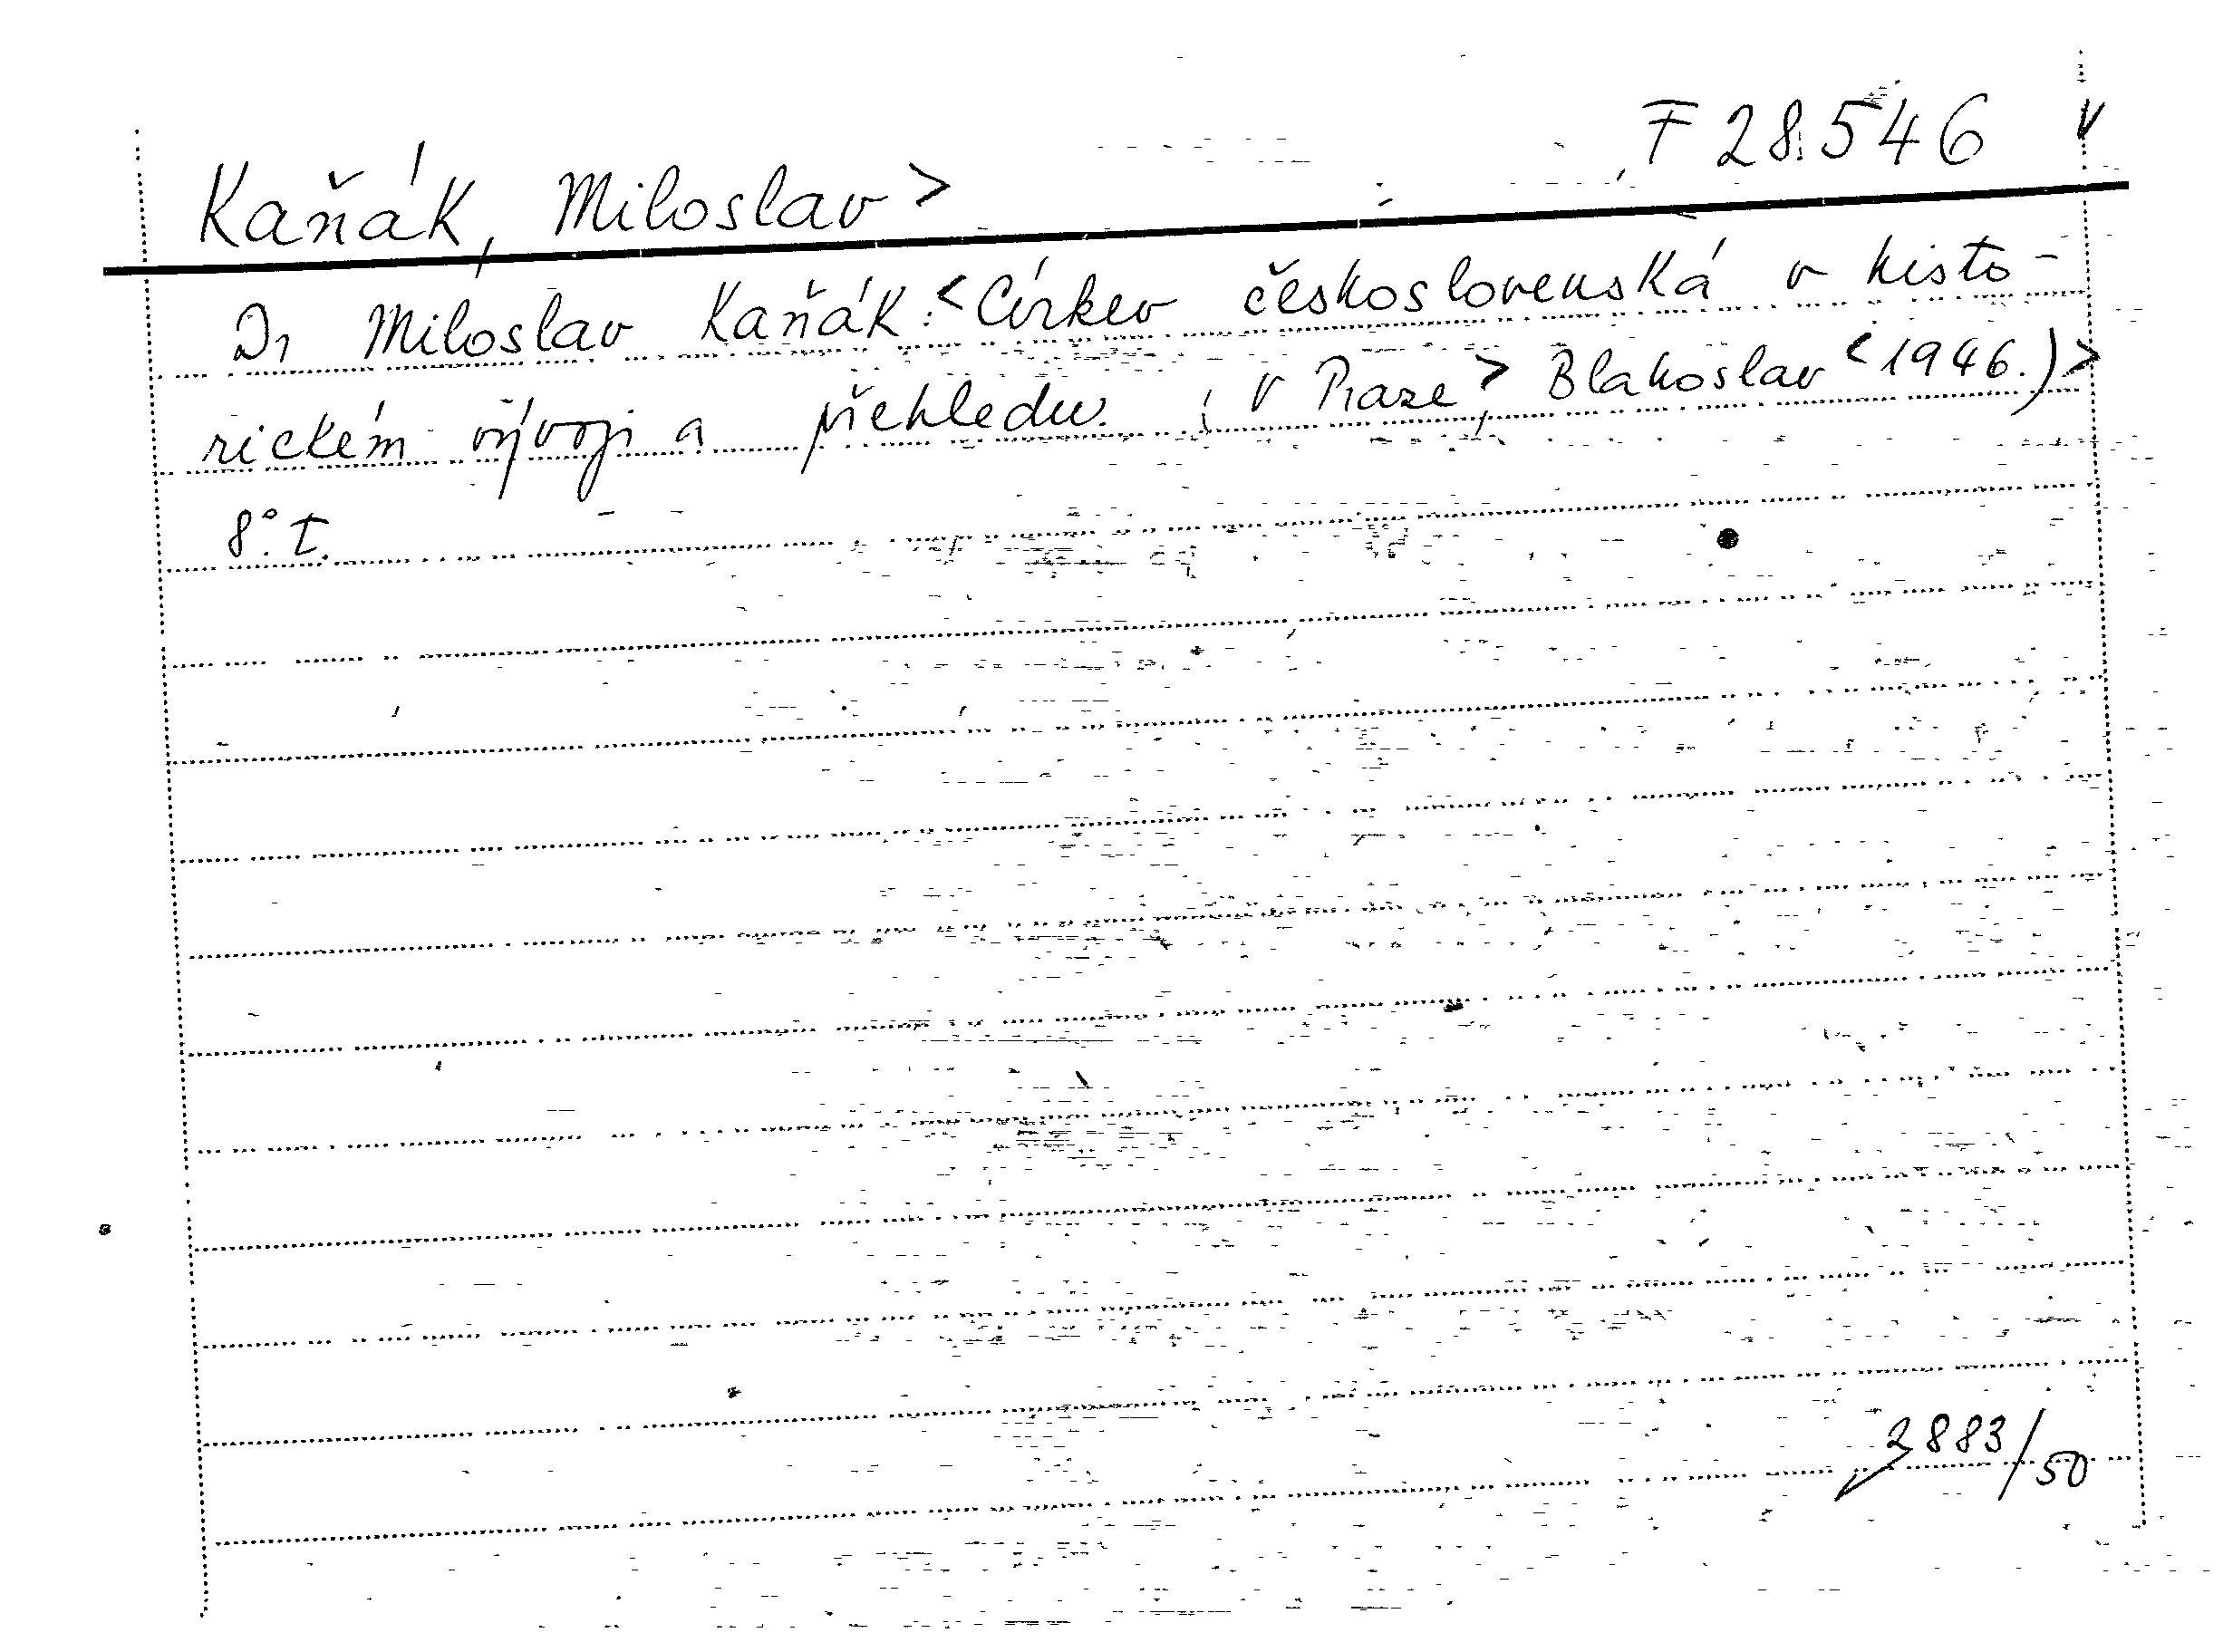 F 28.546 v
Kaňák, Miloslav >
Dr Miloslav Kaňák: < Církev československá v histo-
rickém vývoji a přehledu. ( V Praze, > Blahoslav < 1946.) >
8°. t.
2883/50